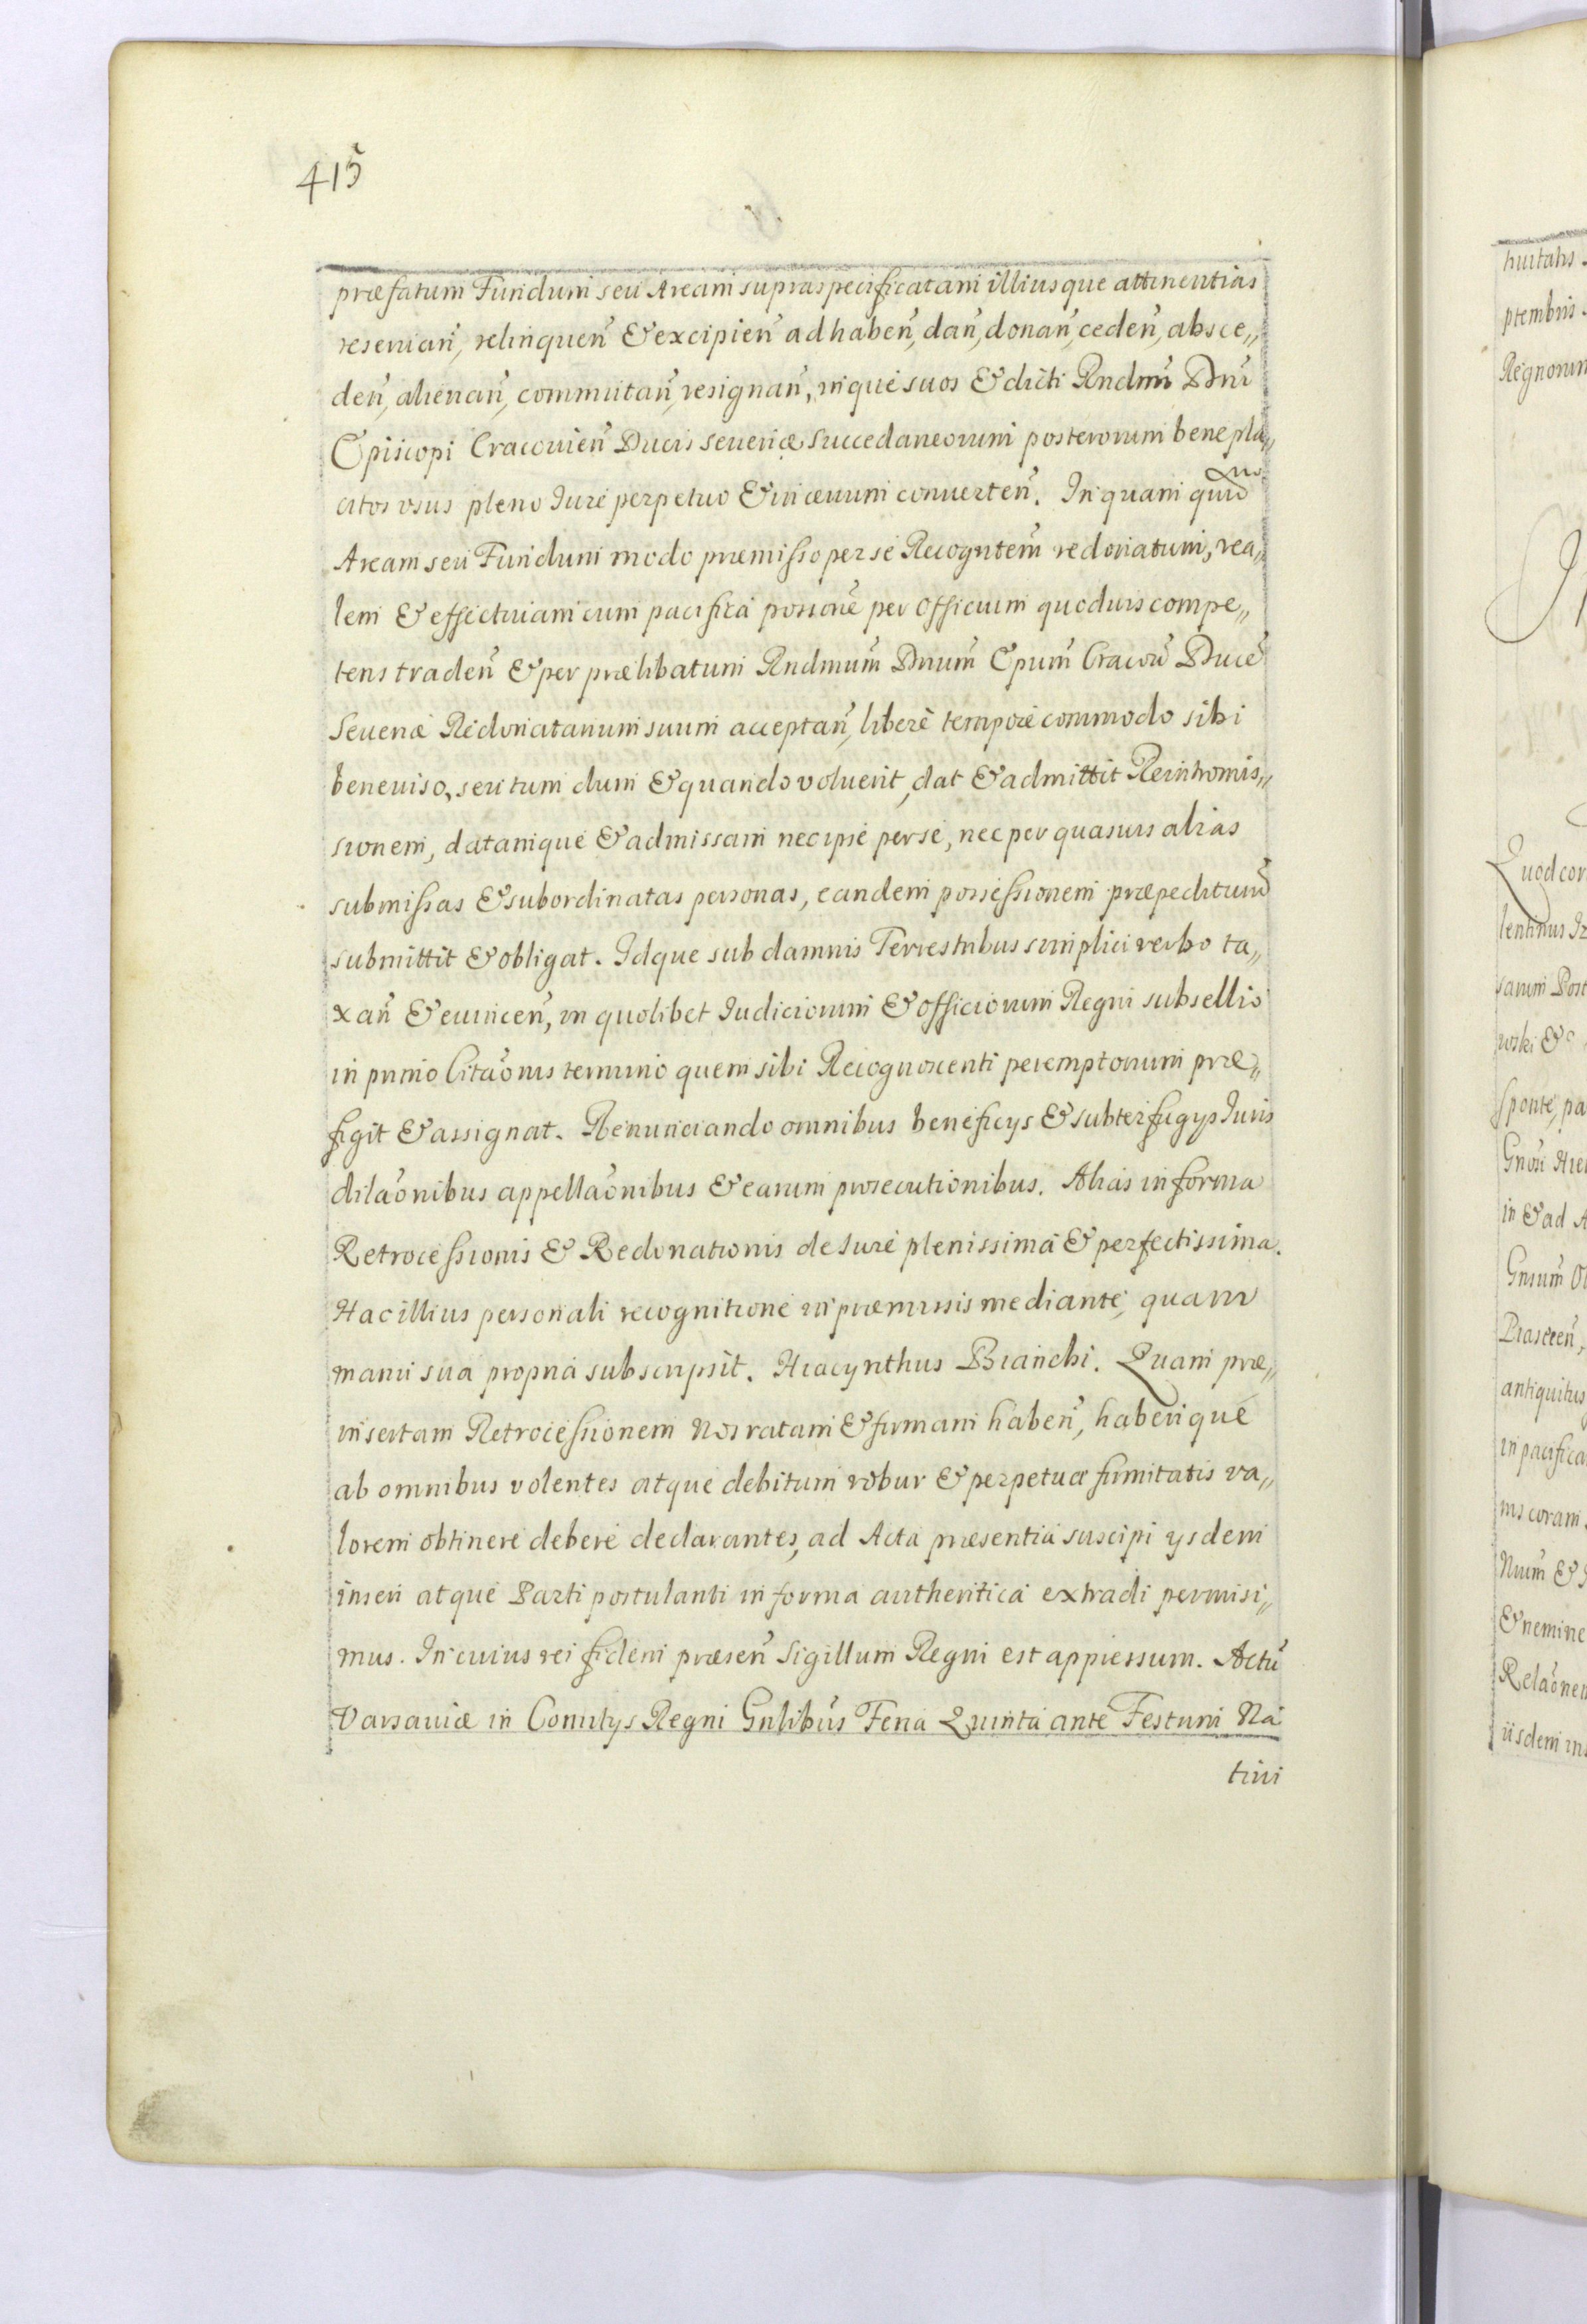 415
præfatum Fundum seu Aream supraspecificatam illiusque attinentias
reservan̄, relinquen̄ & excipien̄ ad haben̄, dan̄, donan̄, ceden̄, absce„
den̄, alienan̄, commutan̄, resignan̄, inque suos & dicti Rndmi Dni
Episcopi Cracovien̄ Ducis Severiæ succedaneorum posterorum benepla„
citos usus pleno Jure perpetuo & in ævum converten̄. In quam quid
Aream seu Fundum modo præmisso per se Recogntem̄ redonatum, rea„
lem & effectivam cum pacifica possione per Officium quodvis compe„
tens traden̄ & per prælibatum Rndmum̄ Dnum̄ Epum̄ Cracov̄ Ducē
Severiæ Redonatarium suum acceptan̄, liberè tempore commodo sibi
beneviso, seu tum dum & quando voluerit, dat & admittit Reintromis„
sionem, datamque & admissam nec ipse per se, nec per quasvis alias
submissas & subordinatas personas, eandem possessionem præpediturū
submittit & obligat. Idque sub damnis Terrestribus simplici verbo ta„
xan̄ & evincen̄, in quolibet Judiciorum & officiorum Regni subsellio
in primo Citāonis termino quem sibi Recognoscenti peremptorium præ„
figit & assignat. Renunciando omnibus beneficys & subterfugys Juris
dilāonibus appellāonibus & earum prosecutionibus. Alias in forma
Retrocessionis & Redonationis de Jure plenissima & perfectissima.
Hac illius personali recognitione in præmissis mediante, quam
manu sua propria subscripsit. Hiacynthus Bianchi. Quam præ„
insertam Retrocessionem Nos ratam & firmam haben̄, haberique
ab omnibus volentes atque debitum robur & perpetuæ firmitatis va„
lorem obtinere debere declarantes, ad Acta præsentia suscipi ysdem
inseri atque Parti postulanti in forma authentica extradi permisi„
mus. In cuius rei fidem præsen̄ Sigillum Regni est appressum. Actū
Varsaviæ in Comitys Regni Gnlibus̄ Feria Quinta ante Festum Na
tivi